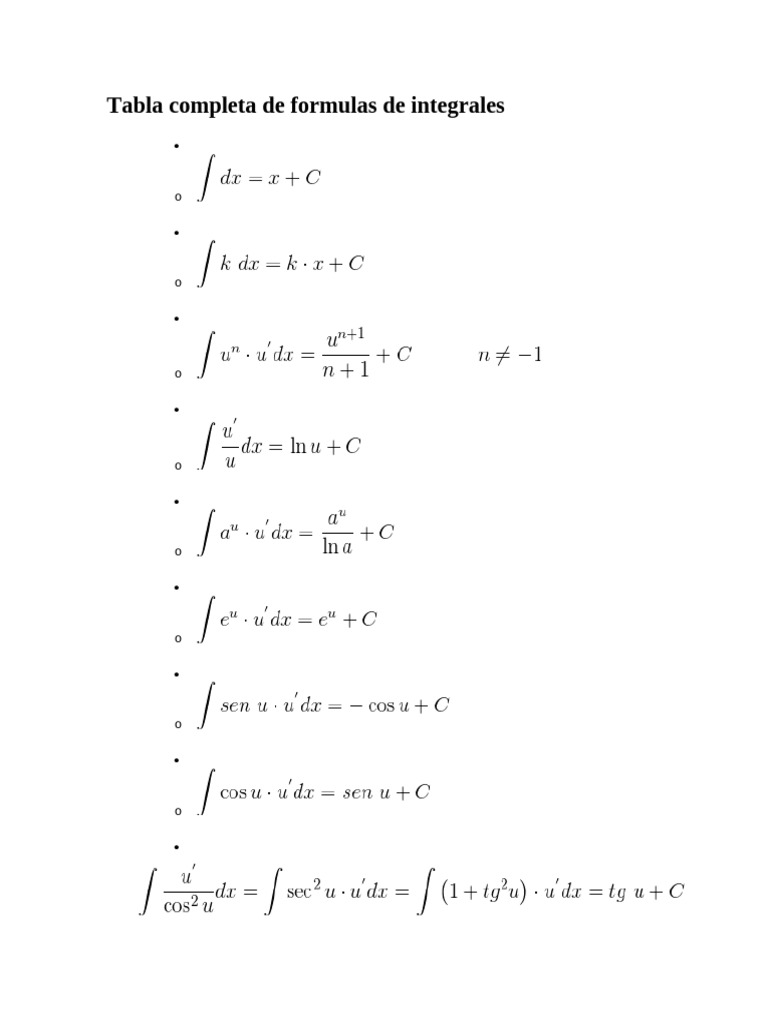 Tabla completa de formulas de integrales
∫ dx = x + C
∫ k dx = k · x + C
∫ uⁿ · u′dx = uⁿ⁺¹/(n + 1) + C n ≠ −1
∫ u′/u dx = ln u + C
∫ aᵘ · u′dx = aᵘ/ln a + C
∫ eᵘ · u′dx = eᵘ + C
∫ sen u · u′dx = − cos u + C
∫ cos u · u′dx = sen u + C
∫ u′/cos² u dx = ∫ sec² u · u′dx = ∫ (1 + tg²u) · u′dx = tg u + C